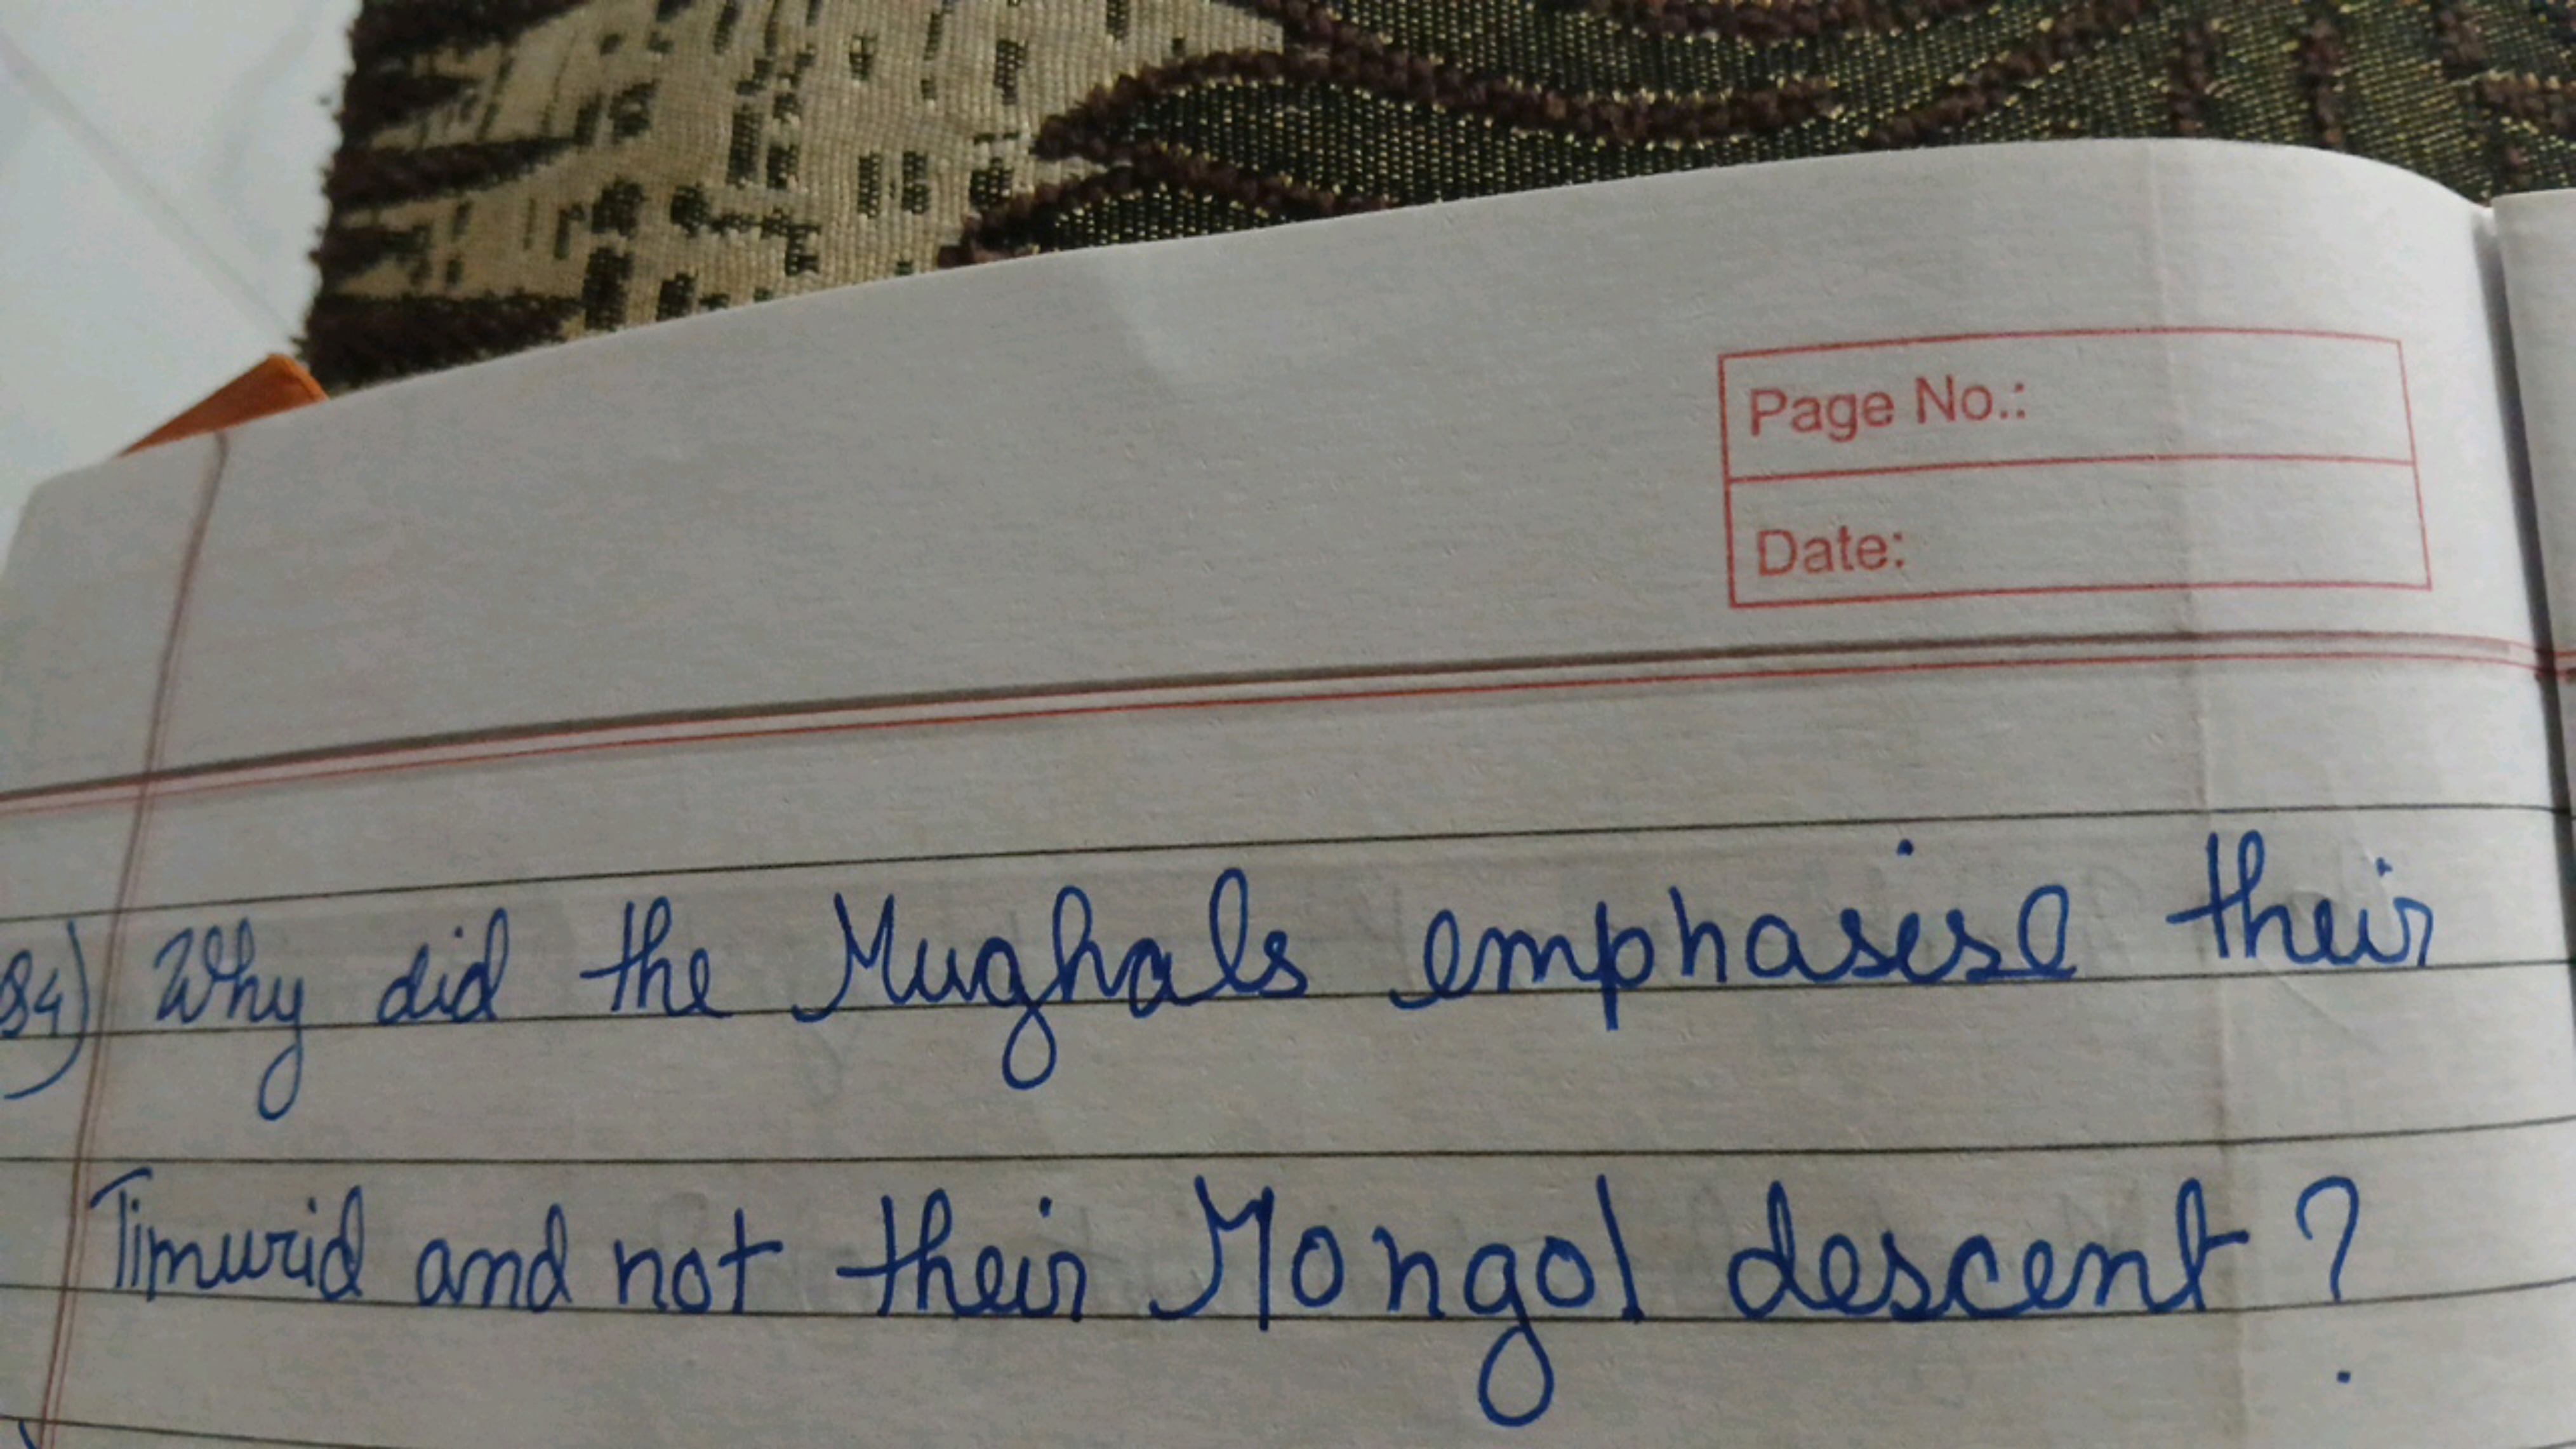 Page No.:
Date:
Q4) Why did the Mughals emphasise their
Timurid and not their Mongol descent?